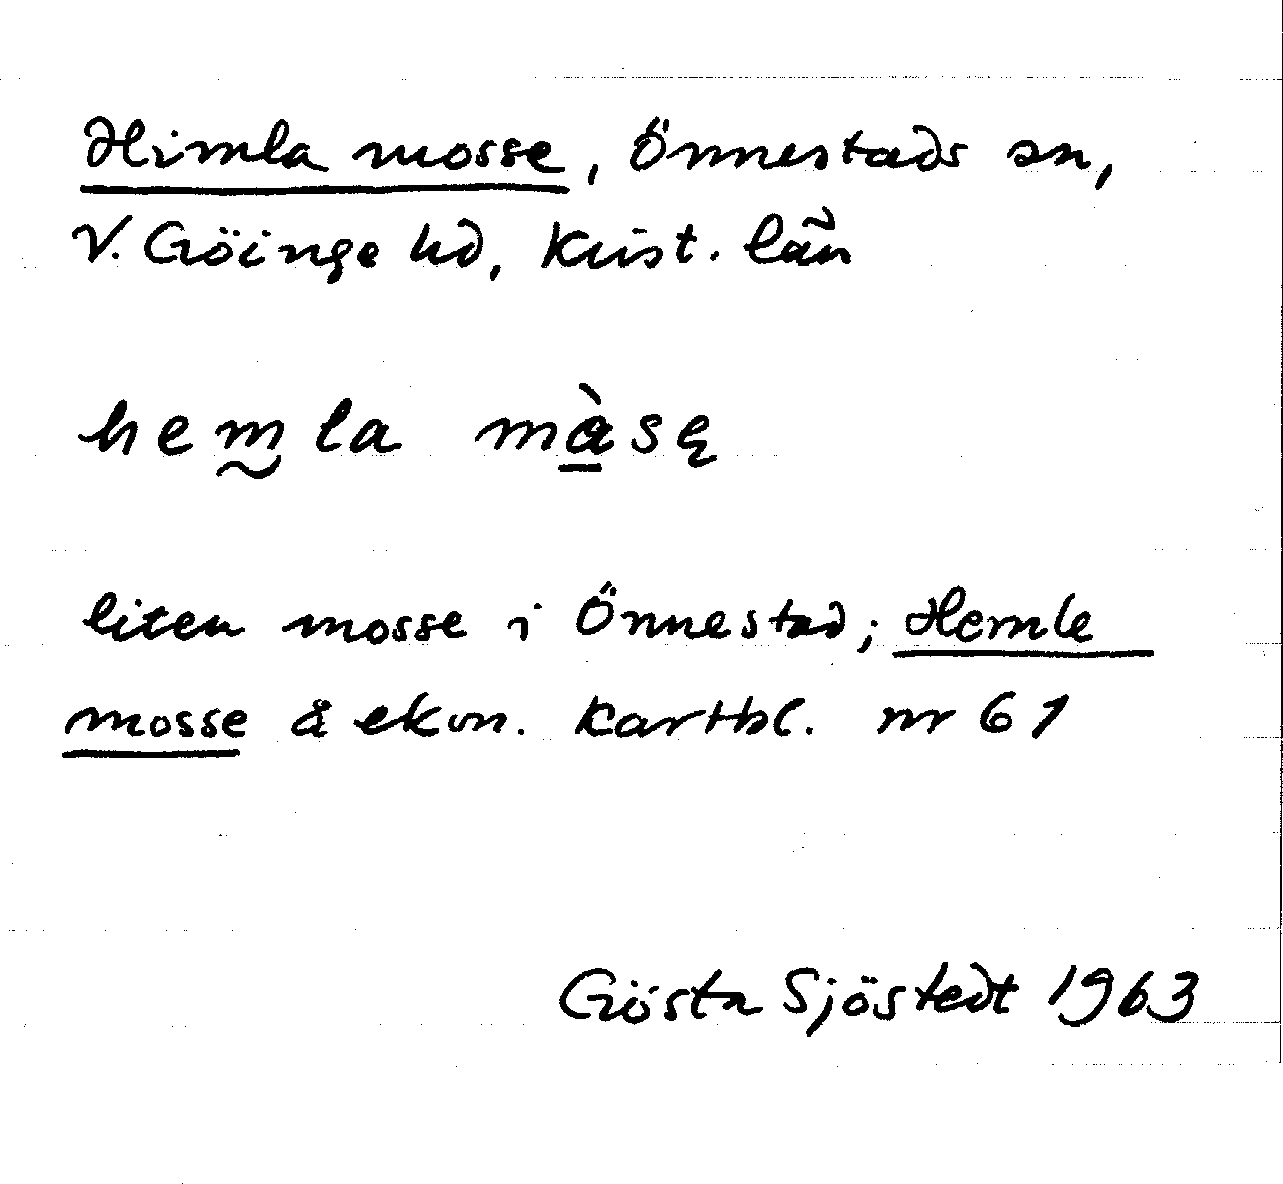 Himla mosse, Önnestads sn,
V. Göinge hd, Krist. län
hem̰la mà̱sę
liten mosse i Önnestad; Hemle
mosse å ekon. kartbl. nr 61
Gösta Sjöstedt 1963